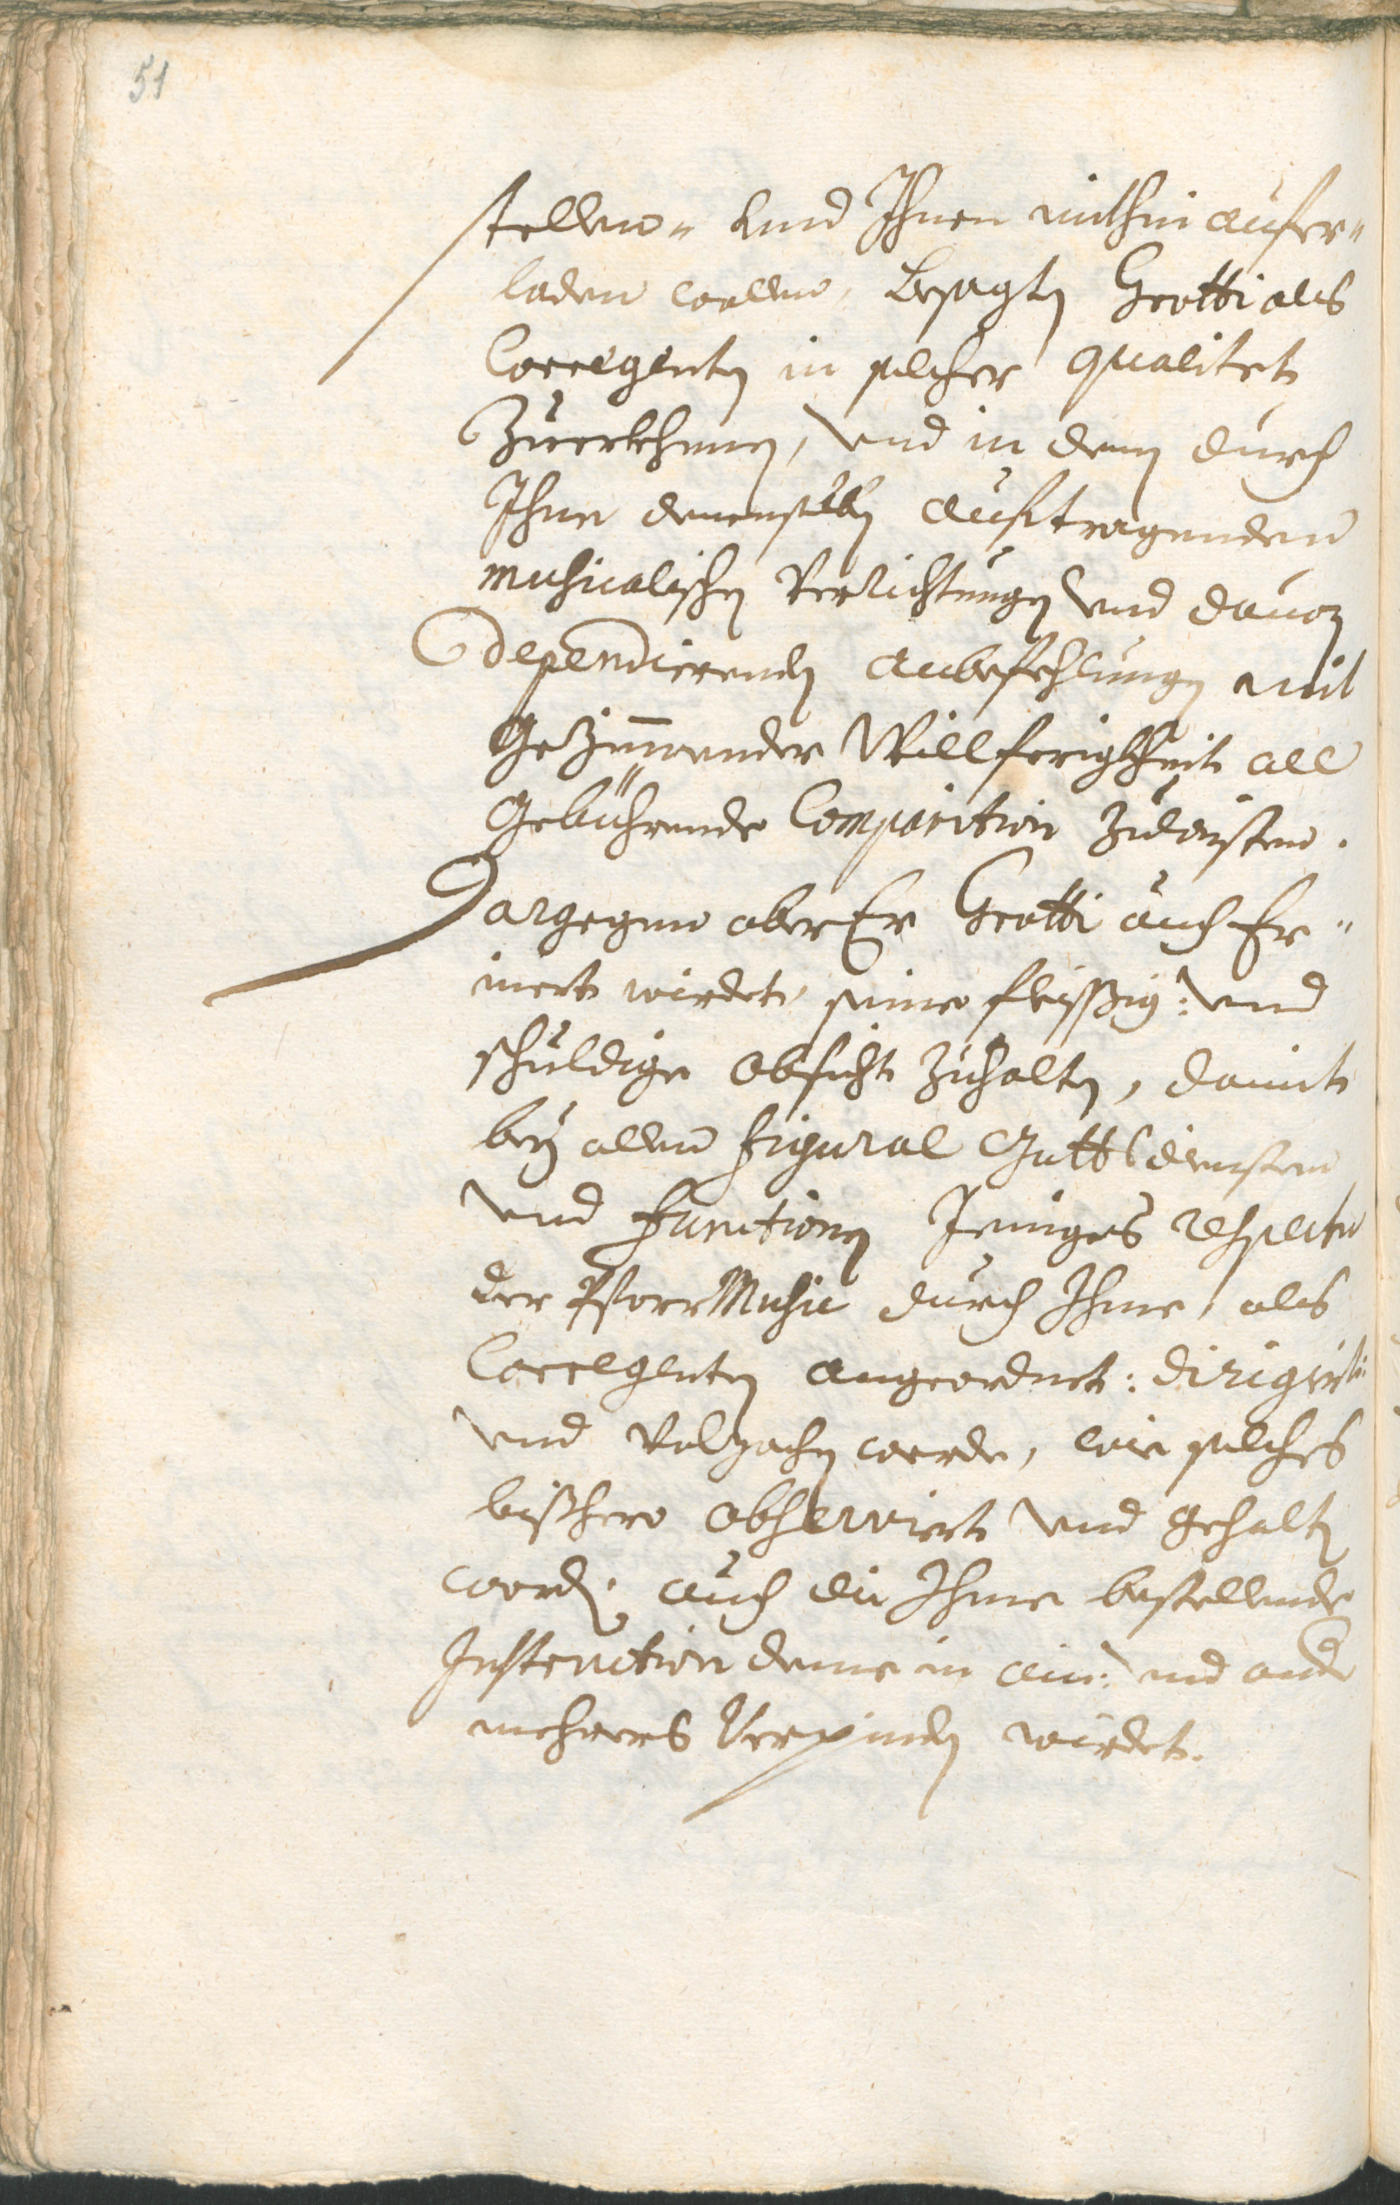 51
stellen= und Ihnen mithin aufer=
laden wollen, besagten Grotti als
Corregenten in solcher qualitet
Zuerkhennen, und in denen durch
Ihne denenselben aufftragenden
musicalischen Verrichtungen und davon
dependierenden anbefehlungen mit
Gezimmender Willferigkheit all
Gebührende Comparition zulaisten.
Dargegen aber Er Grotti auch Er=
inert wirdet, seine fleissig: und
schuldige obsicht zuhalten, damit
bey allen figural Gottsdiensten
und functionen Jeniges respectu
der Pfarr Music durch Ihme, als
Corregenten angeordnet: dirigirt:
und Volzochen werde, wie solches
bißhero observirt und gehalten
worden, auch die Ihme bestellende
Instruction deme in ain: und ander
mehrers Verpinden wirdet.